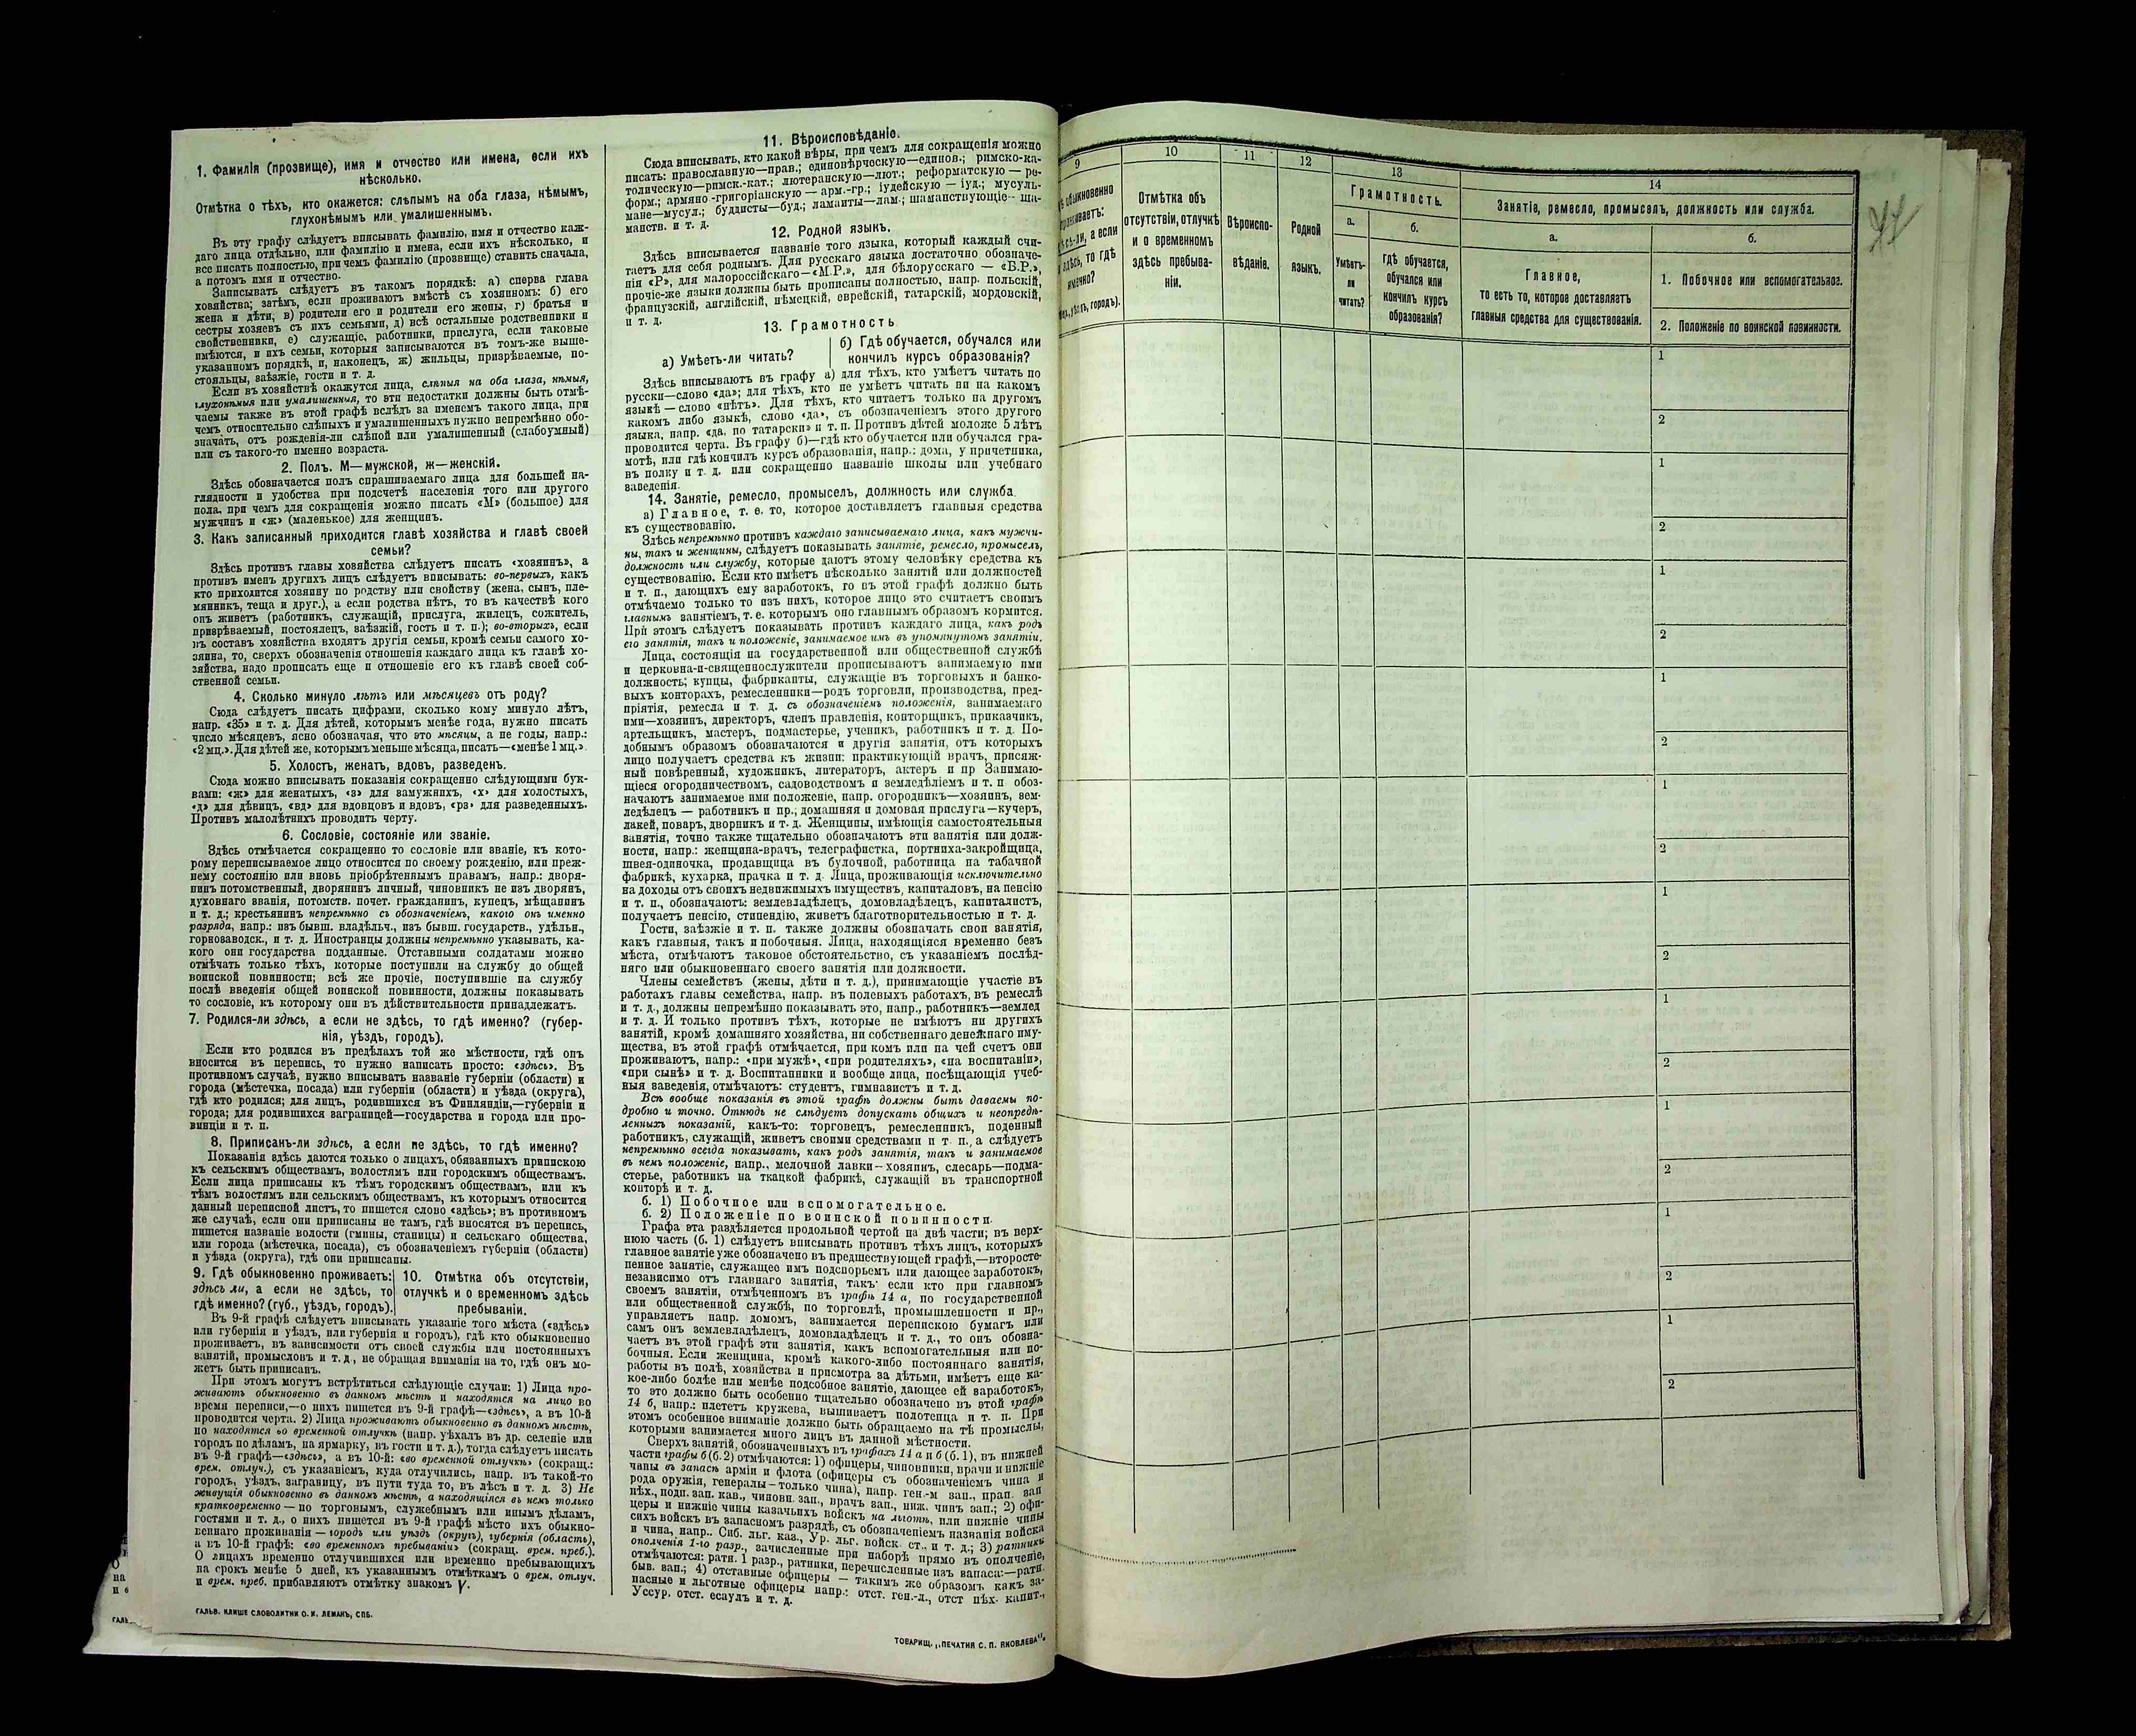 1. Фамилія (прозвище), имя и отчество или имена, если ихъ
нѣсколько.
Отмѣтка о тѣхъ, кто окажется: слѣпымъ на оба глаза, нѣмымъ,
глухонѣмымъ или умалишеннымъ.
Въ эту графу слѣдуетъ вписывать фамилію, имя и отчество каж-
даго лица отдѣльно, или фамилію и имена, если ихъ нѣсколько, и
все писать полностью, при чемъ фамилію (прозвище) ставить сначала,
а потомъ имя и отчество.
Записывать слѣдуетъ въ такомъ порядкѣ: а) сперва глава
хозяйства; затѣмъ, если проживаютъ вмѣстѣ съ хозяиномъ: б) его
жена и дѣти, в) родители его и родители его жены, г) братья и
сестры хозяевъ съ ихъ семьями, д) всѣ остальные родственники и
свойственники, е) служащіе, работники, прислуга, если таковые
имѣются, и ихъ семьи, которыя записываются въ томъ-же выше-
указанномъ порядкѣ, и, наконецъ, ж) жильцы, призрѣваемые, по-
стояльцы, заѣзжіе, гости и т. д.
Если въ хозяйствѣ окажутся лица, слѣпыя на оба глаза, нѣмыя,
глухонѣмыя или умалишенныя, то эти недостатки должны быть отмѣ-
чаемы также въ этой графѣ вслѣдъ за именемъ такого лица, при
чемъ относительно слѣпыхъ и умалишенныхъ нужно непремѣнно обо-
значать, отъ рожденія-ли слѣпой или умалишенный (слабоумный)
или съ такого-то именно возраста.
2. Полъ. М—мужской, ж—женскій.
Здѣсь обозначается полъ спрашиваемаго лица для большей на-
глядности и удобства при подсчетѣ населенія того или другого
пола, при чемъ для сокращенія можно писать «М» (большое) для
мужчинъ и «ж» (маленькое) для женщинъ.
3. Какъ записанный приходится главѣ хозяйства и главѣ своей
семьи?
Здѣсь противъ главы хозяйства слѣдуетъ писать «хозяинъ», а
противъ именъ другихъ лицъ слѣдуетъ вписывать: во-первыхъ, какъ
кто приходится хозяину по родству или свойству (жена, сынъ, пле-
мянникъ, теща и друг.), а если родства нѣтъ, то въ качествѣ кого
онъ живетъ (работникъ, служащій, прислуга, жилецъ, сожитель,
призрѣваемый, постоялецъ, заѣзжій, гость и т. п.); во-вторыхъ, если
въ составъ хозяйства входятъ другія семьи, кромѣ семьи самого хо-
зяина, то, сверхъ обозначенія отношенія каждаго лица къ главѣ хо-
зяйства, надо прописать еще и отношеніе его къ главѣ своей соб-
ственной семьи.
4. Сколько минуло лѣтъ или мѣсяцевъ отъ роду?
Сюда слѣдуетъ писать цифрами, сколько кому минуло лѣтъ,
напр. «35» и т. д. Для дѣтей, которымъ менѣе года, нужно писать
число мѣсяцевъ, ясно обозначая, что это мѣсяцы, а не годы, напр.:
«2 мц.». Для дѣтей же, которымъ меньше мѣсяца, писать—«менѣе 1 мц.».
5. Холостъ, женатъ, вдовъ, разведенъ.
Сюда можно вписывать показанія сокращенно слѣдующими бук-
вами: «ж» для женатыхъ, «з» для замужнихъ, «х» для холостыхъ,
«д» для дѣвицъ, «вд» для вдовцовъ и вдовъ, «рз» для разведенныхъ.
Противъ малолѣтнихъ проводить черту.
6. Сословіе, состояніе или званіе.
Здѣсь отмѣчается сокращенно то сословіе или званіе, къ кото-
рому переписываемое лицо относится по своему рожденію, или преж-
нему состоянію или вновь пріобрѣтеннымъ правамъ, напр.: дворя-
нинъ потомственный, дворянинъ личный, чиновникъ не изъ дворянъ,
духовнаго званія, потомств. почет. гражданинъ, купецъ, мѣщанинъ
и т. д.; крестьянинъ непремѣнно съ обозначеніемъ, какого онъ именно
разряда, напр.: изъ бывш. владѣльч., изъ бывш. государств., удѣльн.,
горнозаводск., и т. д. Иностранцы должны непремѣнно указывать, ка-
кого они государства подданные. Отставными солдатами можно
отмѣчать только тѣхъ, которые поступили на службу до общей
воинской повинности; всѣ же прочіе, поступившіе на службу
послѣ введенія общей воинской повинности, должны показывать
то сословіе, къ которому они въ дѣйствительности принадлежатъ.
7. Родился-ли здѣсь, а если не здѣсь, то гдѣ именно? (губер-
нія, уѣздъ, городъ).
Если кто родился въ предѣлахъ той же мѣстности, гдѣ онъ
вносится въ перепись, то нужно написать просто: «здѣсь». Въ
противномъ случаѣ, нужно вписывать названіе губерніи (области) и
города (мѣстечка, посада) или губерніи (области) и уѣзда (округа),
гдѣ кто родился; для лицъ, родившихся въ Финляндіи,—губерніи и
города; для родившихся заграницей—государства и города или про-
винціи и т. п.
8. Приписанъ-ли здѣсь, а если не здѣсь, то гдѣ именно?
Показанія здѣсь даются только о лицахъ, обязанныхъ припискою
къ сельскимъ обществамъ, волостямъ или городскимъ обществамъ.
Если лица приписаны къ тѣмъ городскимъ обществамъ, или къ
тѣмъ волостямъ или сельскимъ обществамъ, къ которымъ относится
данный переписной листъ, то пишется слово «здѣсь»; въ противномъ
же случаѣ, если они приписаны не тамъ, гдѣ вносятся въ перепись,
пишется названіе волости (гмины, станицы) и сельскаго общества,
или города (мѣстечка, посада), съ обозначеніемъ губерніи (области)
и уѣзда (округа), гдѣ они приписаны.
9. Гдѣ обыкновенно проживаетъ:
здѣсь ли, а если не здѣсь, то
гдѣ именно? (губ., уѣздъ, городъ).
10. Отмѣтка объ отсутствіи,
отлучкѣ и о временномъ здѣсь
пребываніи.
Въ 9-й графѣ слѣдуетъ вписывать указаніе того мѣста («здѣсь»
или губернія и уѣздъ, или губернія и городъ), гдѣ кто обыкновенно
проживаетъ, въ зависимости отъ своей службы или постоянныхъ
занятій, промысловъ и т. д., не обращая вниманія на то, гдѣ онъ мо-
жетъ быть приписанъ.
При этомъ могутъ встрѣтиться слѣдующіе случаи: 1) Лица про-
живаютъ обыкновенно въ данномъ мѣстѣ и находятся на лицо во
время переписи,—о нихъ пишется въ 9-й графѣ—«здѣсь», а въ 10-й
проводится черта. 2) Лица проживаютъ обыкновенно въ данномъ мѣстѣ,
но находятся во временной отлучкѣ (напр. уѣхалъ въ др. селеніе или
городъ по дѣламъ, на ярмарку, въ гости и т. д.), тогда слѣдуетъ писать
въ 9-й графѣ—«здѣсь», а въ 10-й: «во временной отлучкѣ» (сокращ.:
врем. отлуч.), съ указаніемъ, куда отлучились, напр. въ такой-то
городъ, уѣздъ, заграницу, въ пути туда то, въ лѣсъ и т. д. 3) Не
живущія обыкновенно въ данномъ мѣстѣ, а находящіяся въ немъ только
кратковременно — по торговымъ, служебнымъ или инымъ дѣламъ,
гостями и т. д., о нихъ пишется въ 9-й графѣ мѣсто ихъ обыкно-
веннаго проживанія — городъ или уѣздъ (округъ), губернія (область),
а въ 10-й графѣ: «во временномъ пребываніи» (сокращ. врем. преб.).
О лицахъ временно отлучившихся или временно пребывающихъ
на срокъ менѣе 5 дней, къ указаннымъ отмѣткамъ о врем. отлуч.
и врем. преб. прибавляютъ отмѣтку знакомъ V.
ГАЛЬВ. КЛИШЕ СЛОВОЛИТНИ О. И. ЛЕМАНЪ, СПБ.
11. Вѣроисповѣданіе.
Сюда вписывать, кто какой вѣры, при чемъ для сокращенія можно
писать: православную—прав.; единовѣрческую—единов.; римско-ка-
толическую—римск.-кат.; лютеранскую—лют.; реформатскую — ре-
форм.; армяно-григоріанскую — арм.-гр.; іудейскую — іуд.; мусуль-
мане—мусул.; буддисты—буд.; ламаиты—лам.; шаманствующіе— ша-
манств. и т. д.
12. Родной языкъ.
Здѣсь вписывается названіе того языка, который каждый счи-
таетъ для себя роднымъ. Для русскаго языка достаточно обозначе-
нія «Р», для малороссійскаго—«М.Р.», для бѣлорусскаго — «Б.Р.»,
прочіе-же языки должны быть прописаны полностью, напр. польскій,
французскій, англійскій, нѣмецкій, еврейскій, татарскій, мордовскій,
и т. д.
13. Грамотность
а) Умѣетъ-ли читать?
б) Гдѣ обучается, обучался или
кончилъ курсъ образованія?
Здѣсь вписываютъ въ графу а) для тѣхъ, кто умѣетъ читать по
русски—слово «да»; для тѣхъ, кто не умѣетъ читать ни на какомъ
языкѣ — слово «нѣтъ». Для тѣхъ, кто читаетъ только на другомъ
какомъ либо языкѣ, слово «да», съ обозначеніемъ этого другого
языка, напр. «да, по татарски» и т. п. Противъ дѣтей моложе 5 лѣтъ
проводится черта. Въ графу б)—гдѣ кто обучается или обучался гра-
мотѣ, или гдѣ кончилъ курсъ образованія, напр.: дома, у причетника,
въ полку и т. д. или сокращенно названіе школы или учебнаго
заведенія.
14. Занятіе, ремесло, промыселъ, должность или служба.
а) Главное, т. е. то, которое доставляетъ главныя средства
къ существованію.
Здѣсь непремѣнно противъ каждаго записываемаго лица, какъ мужчи-
ны, такъ и женщины, слѣдуетъ показывать занятіе, ремесло, промыселъ,
должность или службу, которые даютъ этому человѣку средства къ
существованію. Если кто имѣетъ нѣсколько занятій или должностей
и т. п., дающихъ ему заработокъ, то въ этой графѣ должно быть
отмѣчаемо только то изъ нихъ, которое лицо это считаетъ своимъ
главнымъ занятіемъ, т. е. которымъ оно главнымъ образомъ кормится.
При этомъ слѣдуетъ показывать противъ каждаго лица, какъ родъ
его занятія, такъ и положеніе, занимаемое имъ въ упомянутомъ занятіи.
Лица, состоящія на государственной или общественной службѣ
и церковно-и-священнослужители прописываютъ занимаемую ими
должность; купцы, фабриканты, служащіе въ торговыхъ и банко-
выхъ конторахъ, ремесленники—родъ торговли, производства, пред-
пріятія, ремесла и т. д. съ обозначеніемъ положенія, занимаемаго
ими—хозяинъ, директоръ, членъ правленія, конторщикъ, приказчикъ,
артельщикъ, мастеръ, подмастерье, ученикъ, работникъ и т. д. По-
добнымъ образомъ обозначаются и другія занятія, отъ которыхъ
лицо получаетъ средства къ жизни: практикующій врачъ, присяж-
ный повѣренный, художникъ, литераторъ, актеръ и пр Занимаю-
щіеся огородничествомъ, садоводствомъ и земледѣліемъ и т. п обоз-
начаютъ занимаемое ими положеніе, напр. огородникъ—хозяинъ, зем-
ледѣлецъ — работникъ и пр.; домашняя и домовая прислуга—кучеръ,
лакей, поваръ, дворникъ и т. д. Женщины, имѣющія самостоятельныя
занятія, точно также тщательно обозначаютъ эти занятія или долж-
ности, напр.: женщина-врачъ, телеграфистка, портниха-закройщица,
швея-одиночка, продавщица въ булочной, работница на табачной
фабрикѣ, кухарка, прачка и т. д. Лица, проживающія исключительно
на доходы отъ своихъ недвижимыхъ имуществъ, капиталовъ, на пенсію
и т. п., обозначаютъ: землевладѣлецъ, домовладѣлецъ, капиталистъ,
получаетъ пенсію, стипендію, живетъ благотворительностью и т. д.
Гости, заѣзжіе и т. п. также должны обозначать свои занятія,
какъ главныя, такъ и побочныя. Лица, находящіяся временно безъ
мѣста, отмѣчаютъ таковое обстоятельство, съ указаніемъ послѣд-
няго или обыкновеннаго своего занятія или должности.
Члены семействъ (жены, дѣти и т. д.), принимающіе участіе въ
работахъ главы семейства, напр. въ полевыхъ работахъ, въ ремеслѣ
и т. д., должны непремѣнно показывать это, напр., работникъ—землед
и т. д. И только противъ тѣхъ, которые не имѣютъ ни другихъ
занятій, кромѣ домашняго хозяйства, ни собственнаго денежнаго иму-
щества, въ этой графѣ отмѣчается, при комъ или на чей счетъ они
проживаютъ, напр.: «при мужѣ», «при родителяхъ», «на воспитаніи»,
«при сынѣ» и т. д. Воспитанники и вообще лица, посѣщающія учеб-
ныя заведенія, отмѣчаютъ: студентъ, гимназистъ и т. д.
Всѣ вообще показанія въ этой графѣ должны быть даваемы по-
дробно и точно. Отнюдь не слѣдуетъ допускать общихъ и неопредѣ-
ленныхъ показаній, какъ-то: торговецъ, ремесленникъ, поденный
работникъ, служащій, живетъ своими средствами и т. п., а слѣдуетъ
непремѣнно всегда показывать, какъ родъ занятія, такъ и занимаемое
въ немъ положеніе, напр., мелочной лавки—хозяинъ, слесарь—подма-
стерье, работникъ на ткацкой фабрикѣ, служащій въ транспортной
конторѣ и т. д.
б. 1) Побочное или вспомогательное.
б. 2) Положеніе по воинской повинности.
Графа эта раздѣляется продольной чертой на двѣ части; въ верх-
нюю часть (б. 1) слѣдуетъ вписывать противъ тѣхъ лицъ, которыхъ
главное занятіе уже обозначено въ предшествующей графѣ,—второсте-
пенное занятіе, служащее имъ подспорьемъ или дающее заработокъ,
независимо отъ главнаго занятія, такъ: если кто при главномъ
своемъ занятіи, отмѣченномъ въ графѣ 14 а, по государственной
или общественной службѣ, по торговлѣ, промышленности и пр.,
управляетъ напр. домомъ, занимается перепискою бумагъ или
самъ онъ землевладѣлецъ, домовладѣлецъ и т. д., то онъ обозна-
чаетъ въ этой графѣ эти занятія, какъ вспомогательныя или по-
бочныя. Если женщина, кромѣ какого-либо постояннаго занятія,
работы въ полѣ, хозяйства и присмотра за дѣтьми, имѣетъ еще ка-
кое-либо болѣе или менѣе подсобное занятіе, дающее ей заработокъ,
то это должно быть особенно тщательно обозначено въ этой графѣ
14 б, напр.: плететъ кружева, вышиваетъ полотенца и т. п. При
этомъ особенное вниманіе должно быть обращаемо на тѣ промыслы,
которыми занимается много лицъ въ данной мѣстности.
Сверхъ занятій, обозначенныхъ въ графахъ 14 а и б (б. 1), въ нижней
части графы б (б. 2) отмѣчаются: 1) офицеры, чиновники, врачи и нижніе
чины въ запасѣ арміи и флота (офицеры съ обозначеніемъ чина и
рода оружія, генералы—только чина), напр. ген.-м зап., прап. зап
пѣх., подп. зап. кав., чиновн. зап., врачъ зап., ниж. чинъ зап.; 2) офи-
церы и нижніе чины казачьихъ войскъ на льготѣ, или нижніе чины
сихъ войскъ въ запасномъ разрядѣ, съ обозначеніемъ названія войска
и чина, напр.. Сиб. льг. каз., Ур. льг. войск. ст., и т. д.; 3) ратники
ополченія 1-го разр., зачисленные при наборѣ прямо въ ополченіе,
отмѣчаются: ратн. 1 разр., ратники, перечисленные изъ запаса:—ратн.
быв. зап.; 4) отставные офицеры — такимъ же образомъ какъ за-
пасные и льготные офицеры напр.: отст. ген.-л., отст пѣх. капит.,
Уссур. отст. есаулъ и т. д.
ТОВАРИЩ. „ПЕЧАТНЯ С. П. ЯКОВЛЕВА“.
9
10
11
12
13
14
обыкновенно
а если
здѣсь, то гдѣ
именно?
уѣздъ, городъ).
Отмѣтка объ
отсутствіи, отлучкѣ
и о временномъ
здѣсь пребыва-
ніи.
Вѣроиспо-
вѣданіе.
Родной
языкъ.
Грамотность.
а.
Умѣетъ-
ли
читать?
б.
гдѣ обучается,
обучался или
кончилъ курсъ
образованія?
Занятіе, ремесло, промыселъ, должность или служба.
а.
Главное,
то есть то, которое доставляетъ
главныя средства для существованія.
б.
1. Побочное или вспомогательное.
2. Положеніе по воинской повинности.
1
2
1
2
1
2
1
2
1
2
1
2
1
2
1
2
1
2
1
2